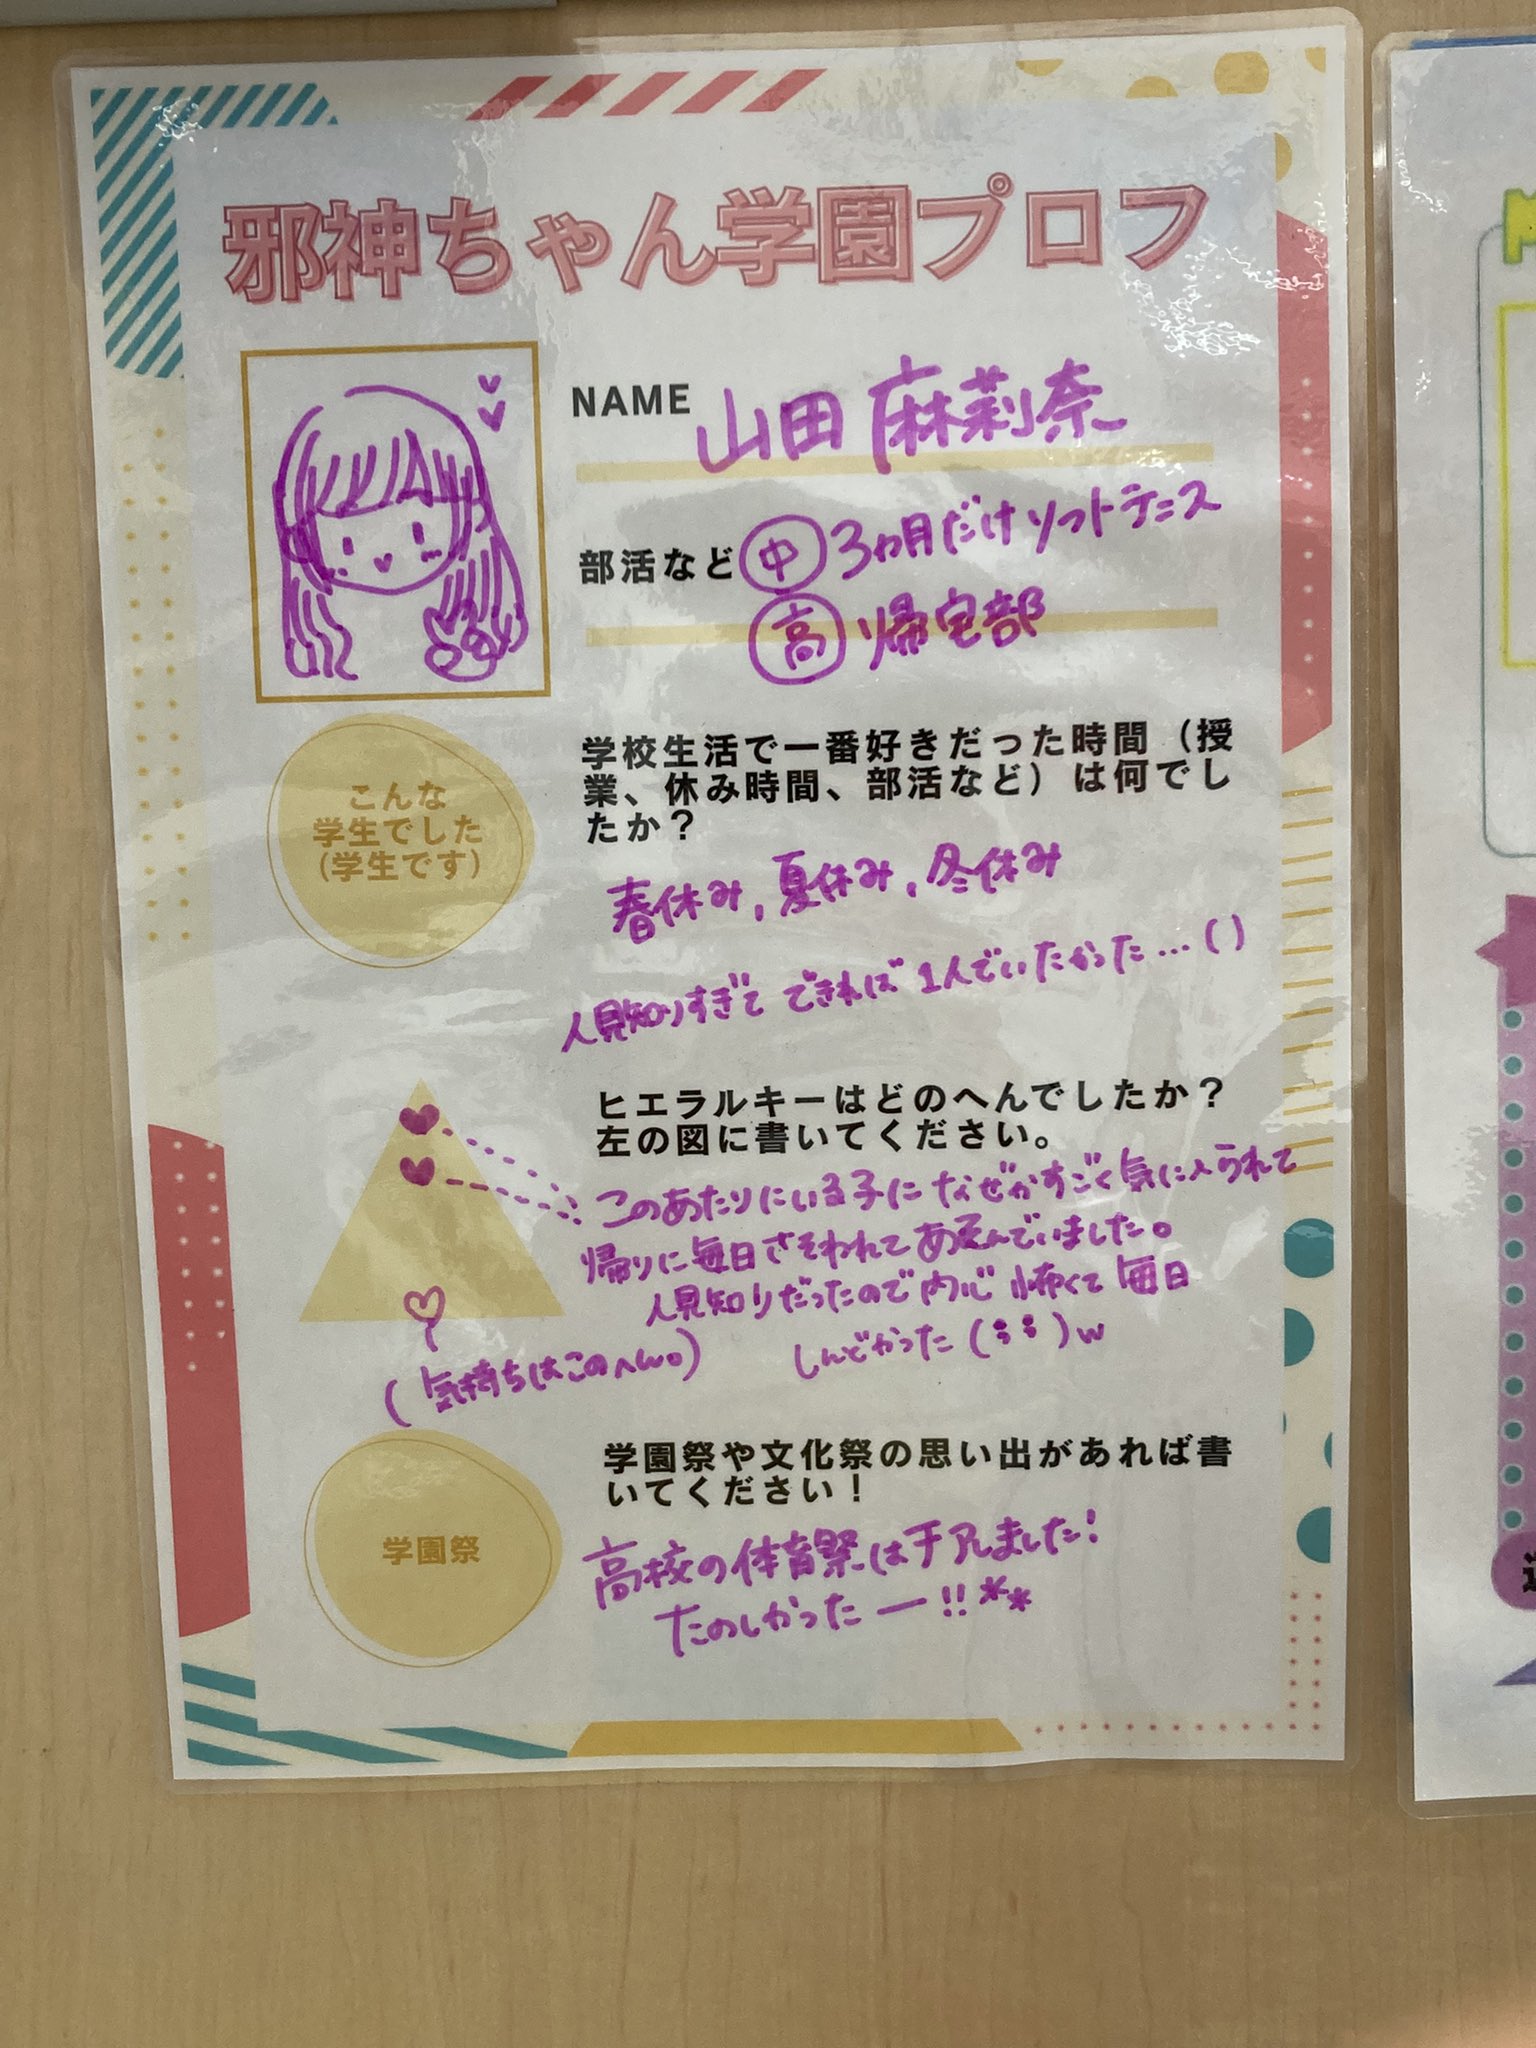 邪神ちゃん学園プロフ
NAME 山田 麻莉奈
部活など 中 3ヵ月だけソフトテニス
高 帰宅部
こんな
学生でした
(学生です)
学校生活で一番好きだった時間（授
業、休み時間、部活など）は何でし
たか？
春休み,夏休み,冬休み
人見知りすぎて できれば 1人でいたかった…( )
ヒエラルキーはどのへんでしたか？
左の図に書いてください。
このあたりにいる子に なぜかすごく気に入られて
帰りに毎日さそわれて あそんでいました。
人見知りだったので内心 怖くて 毎日
しんどかった ( ; ; )w
(気持ちはこのへん。)
学園祭
学園祭や文化祭の思い出があれば書
いてください！
高校の体育祭はチアしました!
たのしかったー!!**